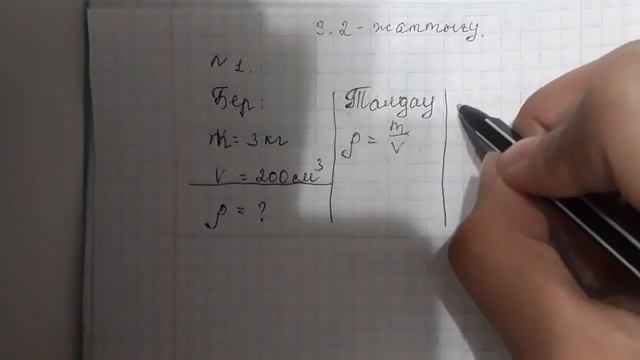 3.2 - жаттығу.
N 1.
Бер:
m = 3 кг
V = 200 см³
ρ = ?
Талдау
ρ = m/V